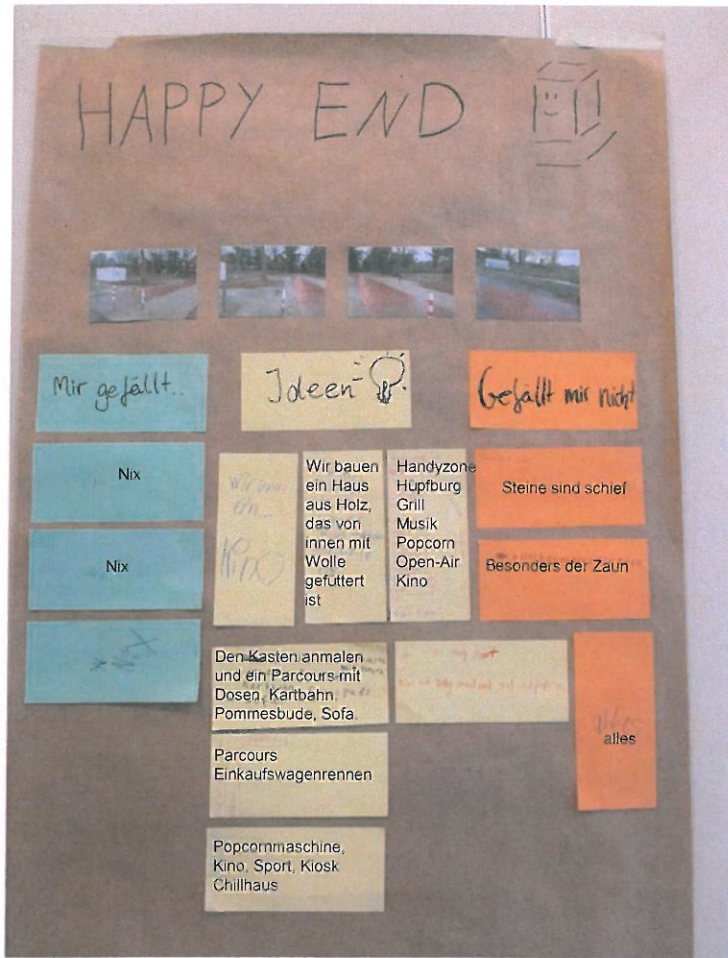 HAPPY END
Mir gefällt..
Ideen
Gefällt mir nicht
Nix
Nix
Wir bauen
ein...
Kino
Wir bauen
ein Haus
aus Holz,
das von
innen mit
Wolle
gefüttert
ist
Handyzone
Hüpfburg
Grill
Musik
Popcorn
Open-Air
Kino
Steine sind schief
Besonders der Zaun
alles
Den Kasten anmalen
und ein Parcours mit
Dosen, Kartbahn.
Pommesbude, Sofa.
Parcours
Einkaufswagenrennen
Popcornmaschine,
Kino, Sport, Kiosk
Chillhaus